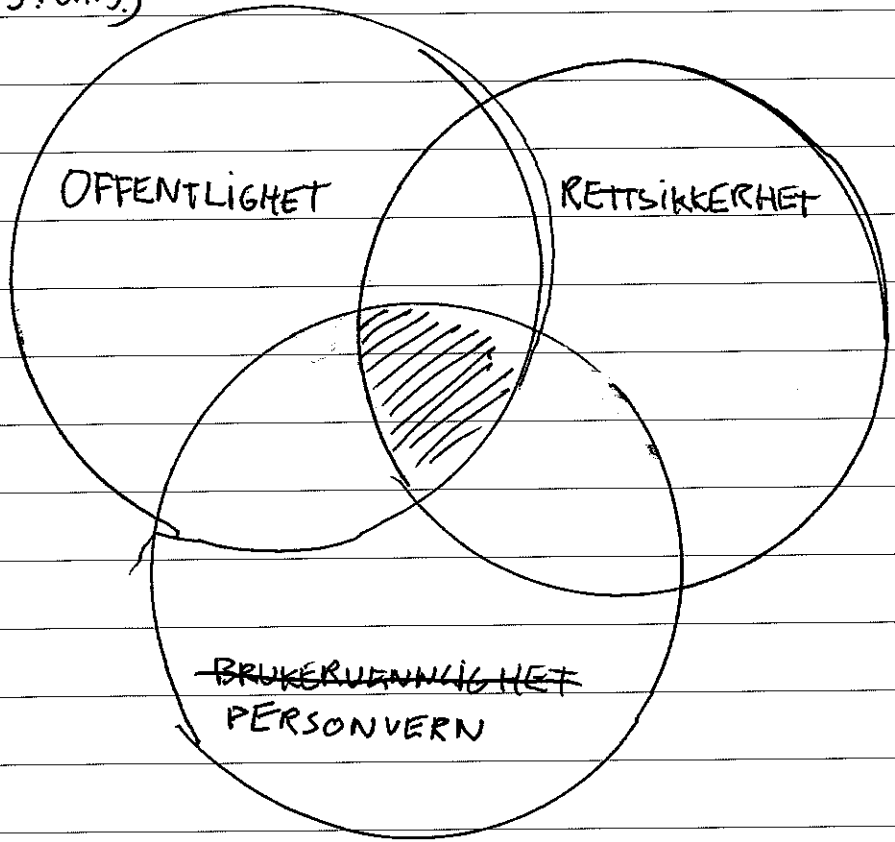 OFFENTLIGHET
RETTSIKKERHET
BRUKERVENNLIGHET
PERSONVERN